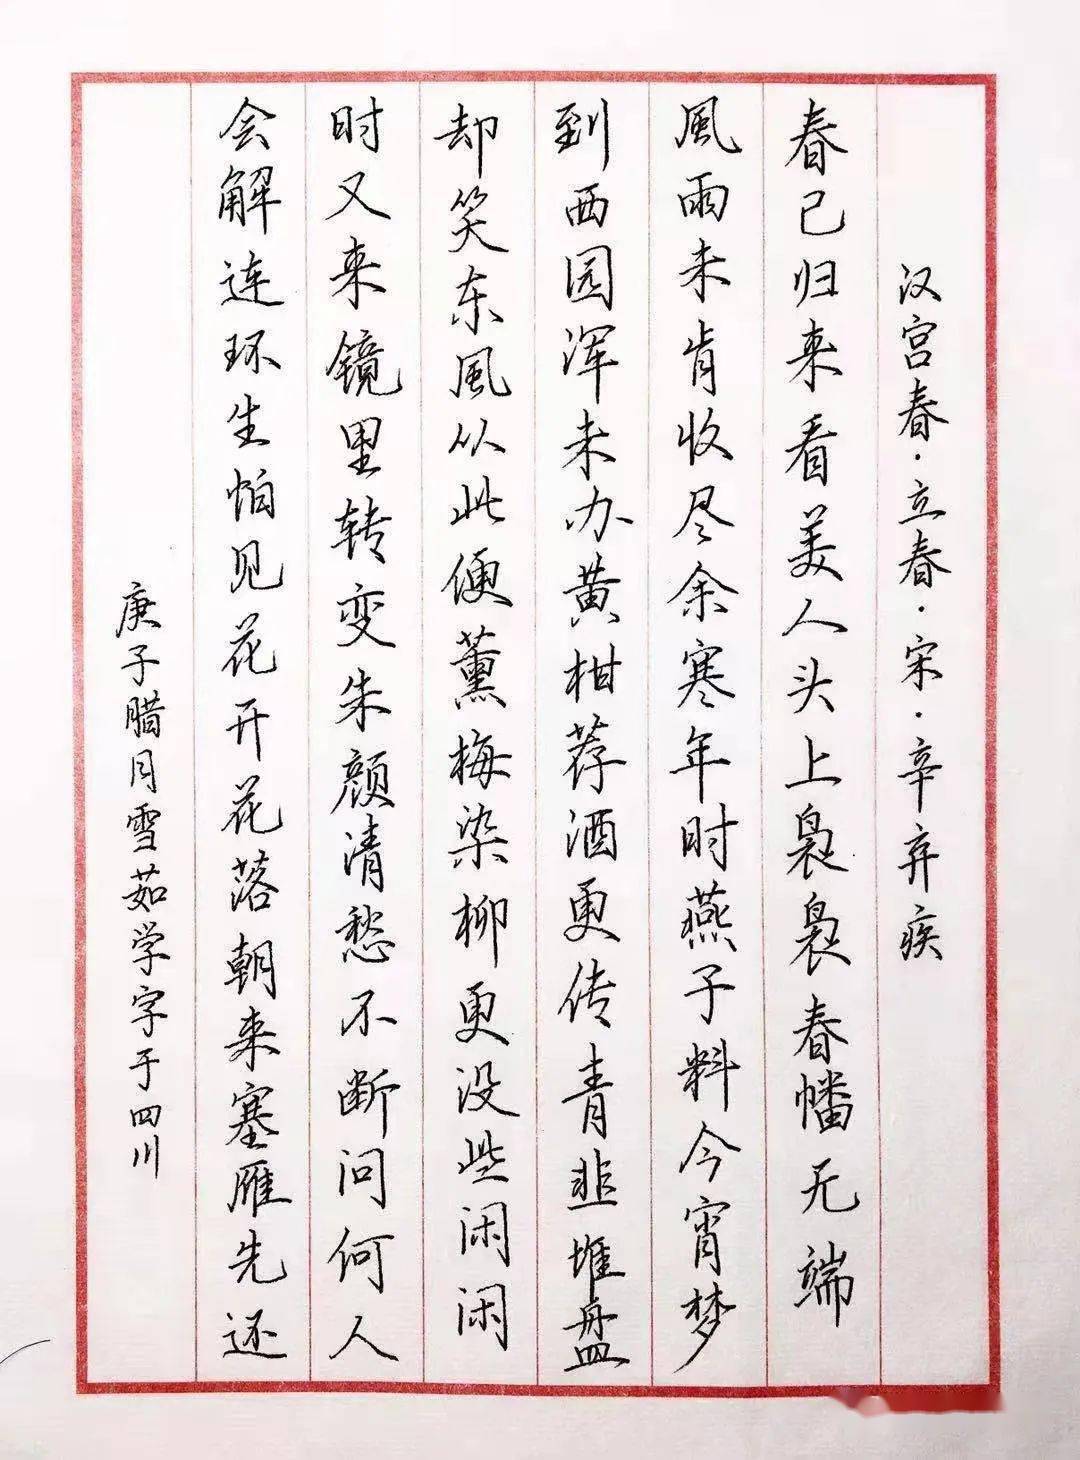 汉宫春·立春·宋·辛弃疾
春已归来看美人头上袅袅春幡无端
風雨未肯收尽余寒年时燕子料今宵梦
到西园浑未办黄柑荐酒更传青韭堆盘
却笑东風从此便薰梅染柳更没些闲闲
时又来镜里转变朱颜清愁不断问何人
会解连环生怕见花开花落朝来塞雁先还
庚子腊月雪茹学字于四川